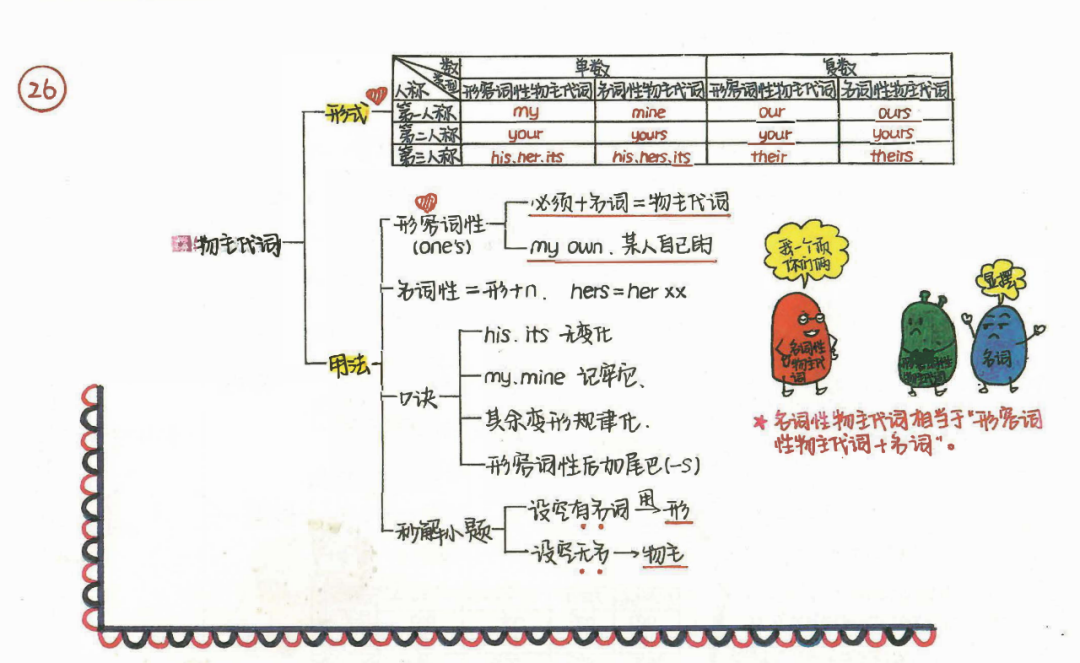 26
物主代词
形式
数
类型
人称
单数 复数
形容词性物主代词 名词性物主代词 形容词性物主代词 名词性物主代词
第一人称 my mine our ours
第二人称 your yours your yours
第三人称 his.her.its his.hers.its their theirs.
用法
形容词性
(one's)
必须+名词=物主代词
my own. 某人自己的
名词性=形+n. hers=her xx
口诀
his. its 无变化
my.mine 记牢它、
其余变形规律化.
形容词性后加尾巴(-s)
秒解小题
设空有名词 用 形
设空无名→物主
我一个顶
你们俩
名词性
物主代
词
形容词性
物主代词
显摆
名词
★ 名词性物主代词相当于"形容词
性物主代词+名词"。